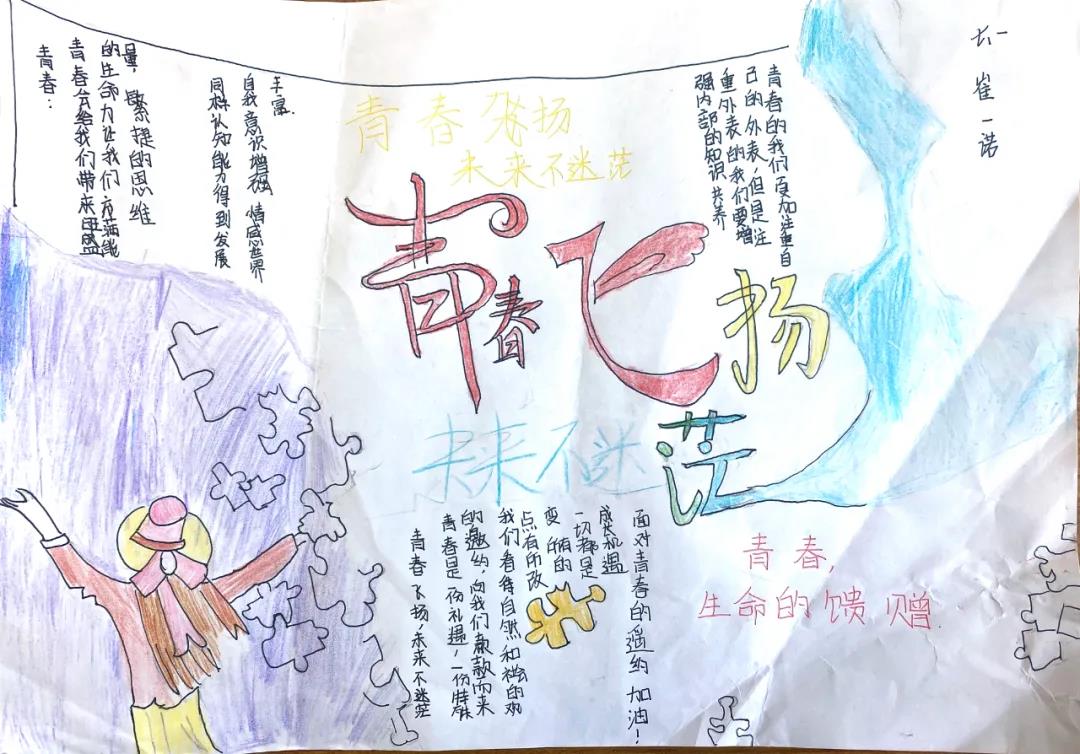 青春：
青春会给我们带来旺盛
的生命力让我们充满能
量，敏捷的思维
同样认知能力得到发展
自我意识增强 情感世界
丰富.
青春飞扬
未来不迷茫
青春飞扬
未来不迷茫
青春的我们更加注重自
己的外表，但是注
重外表的我们要增
强内部的知识
崔一诺
青春飞扬，未来不迷茫
青春是一份礼遇，一份特殊
的邀约，向我们款款而来
我们看待自然和社会的观
点有所改
变 的
一切都是
成长机遇
面对青春的邀约 加油！
青春，
生命的馈赠.